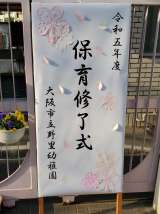 令和五年度
保育修了式
大阪市立野里幼稚園